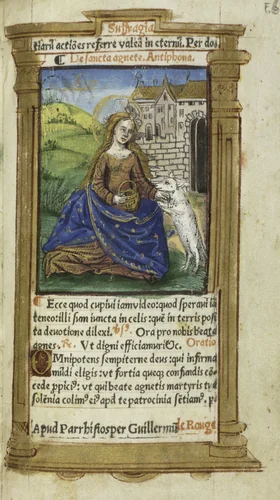 Suffragia
tiarū actiões referre valeā in eternū. Per doñ
¶ De sancta agnete. Antiphona.
¶ Ecce quod cupiui iam video: quod speraui iā
teneo: illi sum iuncta in celis: quē in terris posi
ta deuotione dilexi. Ora pro nobis beata
agnes. Ut digni efficiamur iO̅c. Oratio
OMnipotens sempiterne deus: qui infirma
mūdi eligis: vt fortia queq; confundis cō
cede ꝓpici9: vt qui beate agnetis martyris tue
solēnia colim9 eiꝰ apd te patrocinia sētiam9. p
Apud Parrhisios per Guillermū le Rouge